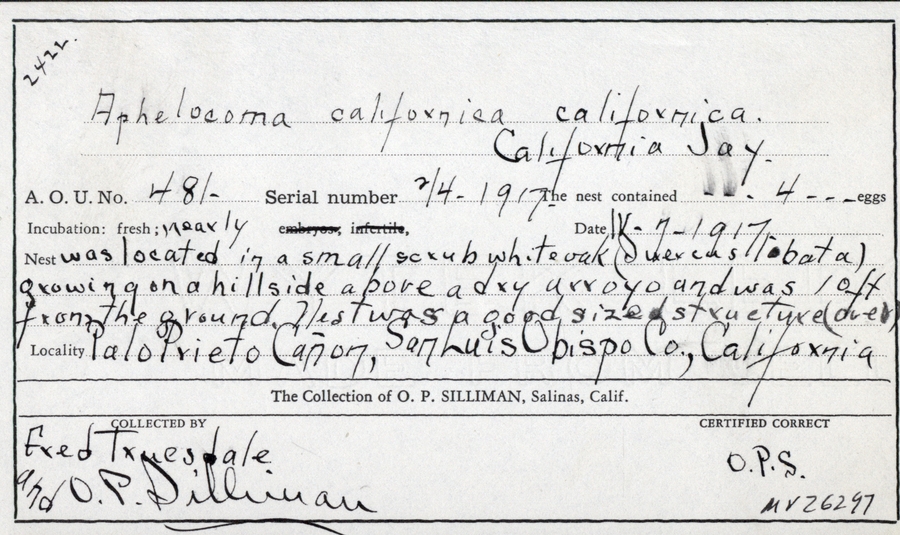 2422.
Aphelocoma californica californica.
California Jay.
A. O. U. No. 481- Serial number 2/4-1917. The nest contained --- 4 --- eggs
Incubation: fresh; nearly embryos, infertile, Date IV-7-1917.
Nest was located in a small scrub white oak (Quercus lobata)
growing on a hillside above a dry arroyo and was 10 ft
from the ground. Nest was a good sized structure (over)
Locality Palo Prieto Cañon, San Luis Obispo Co., California
The Collection of O. P. SILLIMAN, Salinas, Calif.
COLLECTED BY CERTIFIED CORRECT
Fred Truesdale O.P.S.
and O. P. Silliman
MVZ6297